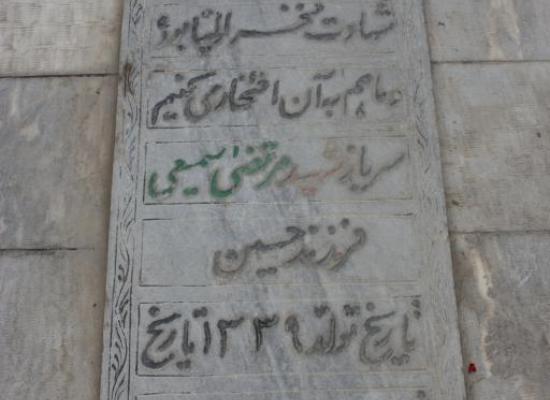 شهادت فخر اولیا بوده
و ما هم به آن افتخار می کنیم
سرباز شهید مرتضی سمیعی
فرزند حسین
تاریخ تولد ۱۳۳۹ تاریخ